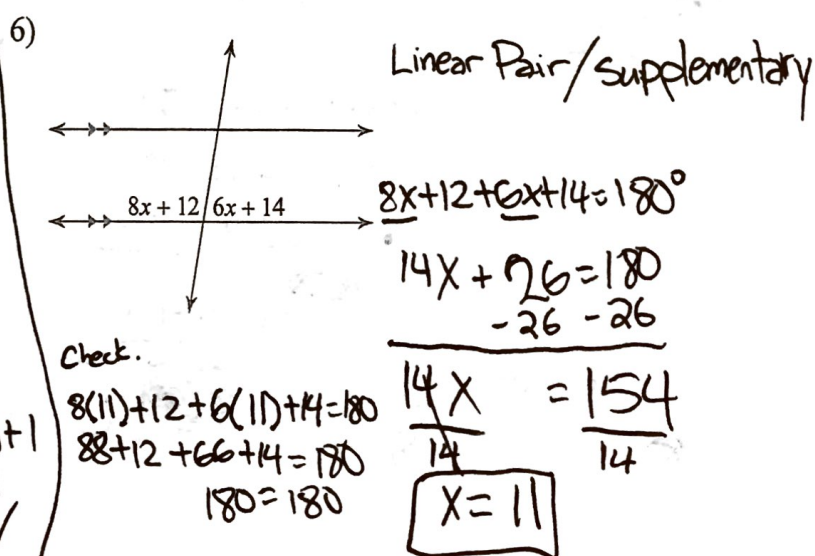 6)
Linear Pair/Supplementary
8x + 12 6x + 14
8x+12+6x+14=180°
14x + 26 = 180
-26 -26
14x = 154
14 14
x = 11
Check.
8(11)+12+6(11)+14=180
88+12+66+14=180
180=180
+1